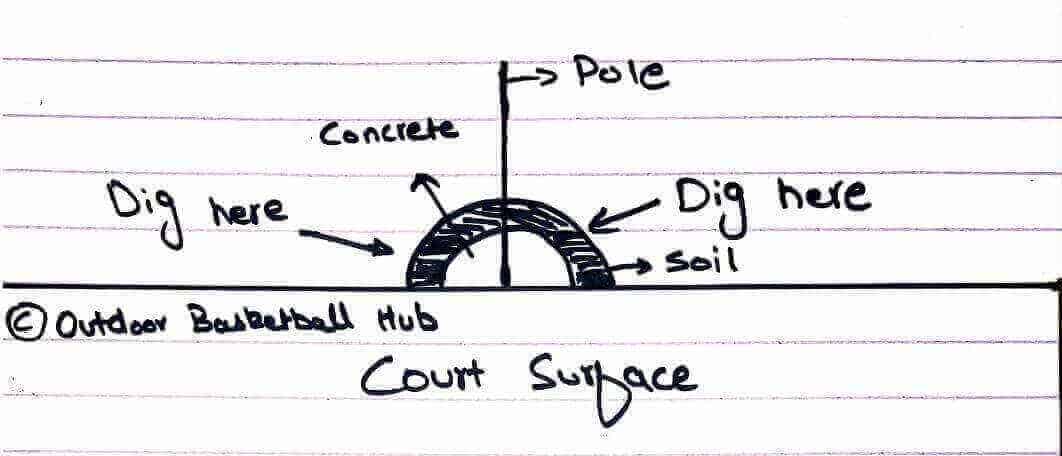 Pole
Concrete
Dig here
Dig here
Soil
© Outdoor Basketball Hub
Court Surface